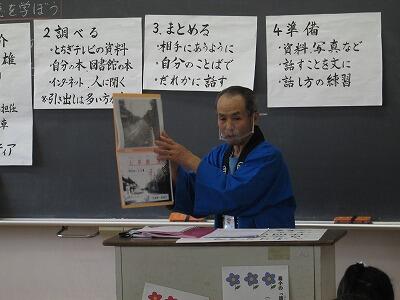 を学ぼう
介
雄
担任
車
ディア
2 調べる
・とちぎテレビの資料
・自分の本、図書館の本
・インターネット、人に聞く
※引き出しは多い方が
3.まとめる
・相手にあうように
・自分のことばで
・だれかに話す
4 準備
・資料、写真など
・話すことを文に
・話し方の練習